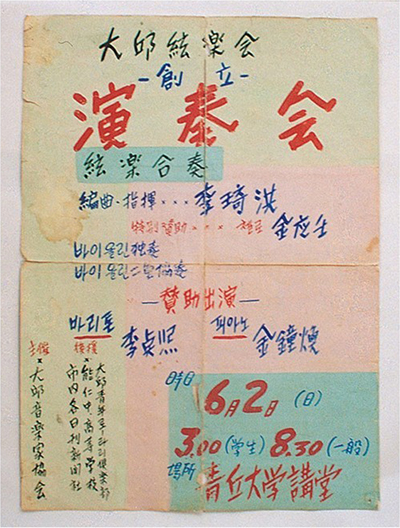 大邱絃楽会
-創立-
演奏会
絃楽合奏
編曲·指揮 ××× 李琦洪
特別賛助 ××× 金应壬
바이올린独奏
바이올린二重協奏
-賛助出演-
바리톤 李貞熙
피아노 金鐘煥
時日 6月2日(日)
3.00(学生) 8.30(一般)
場所 青丘大学講堂
主催 × 大邱音楽家協会
後援 ×
能仁中高等学校
市内各日刊新聞社